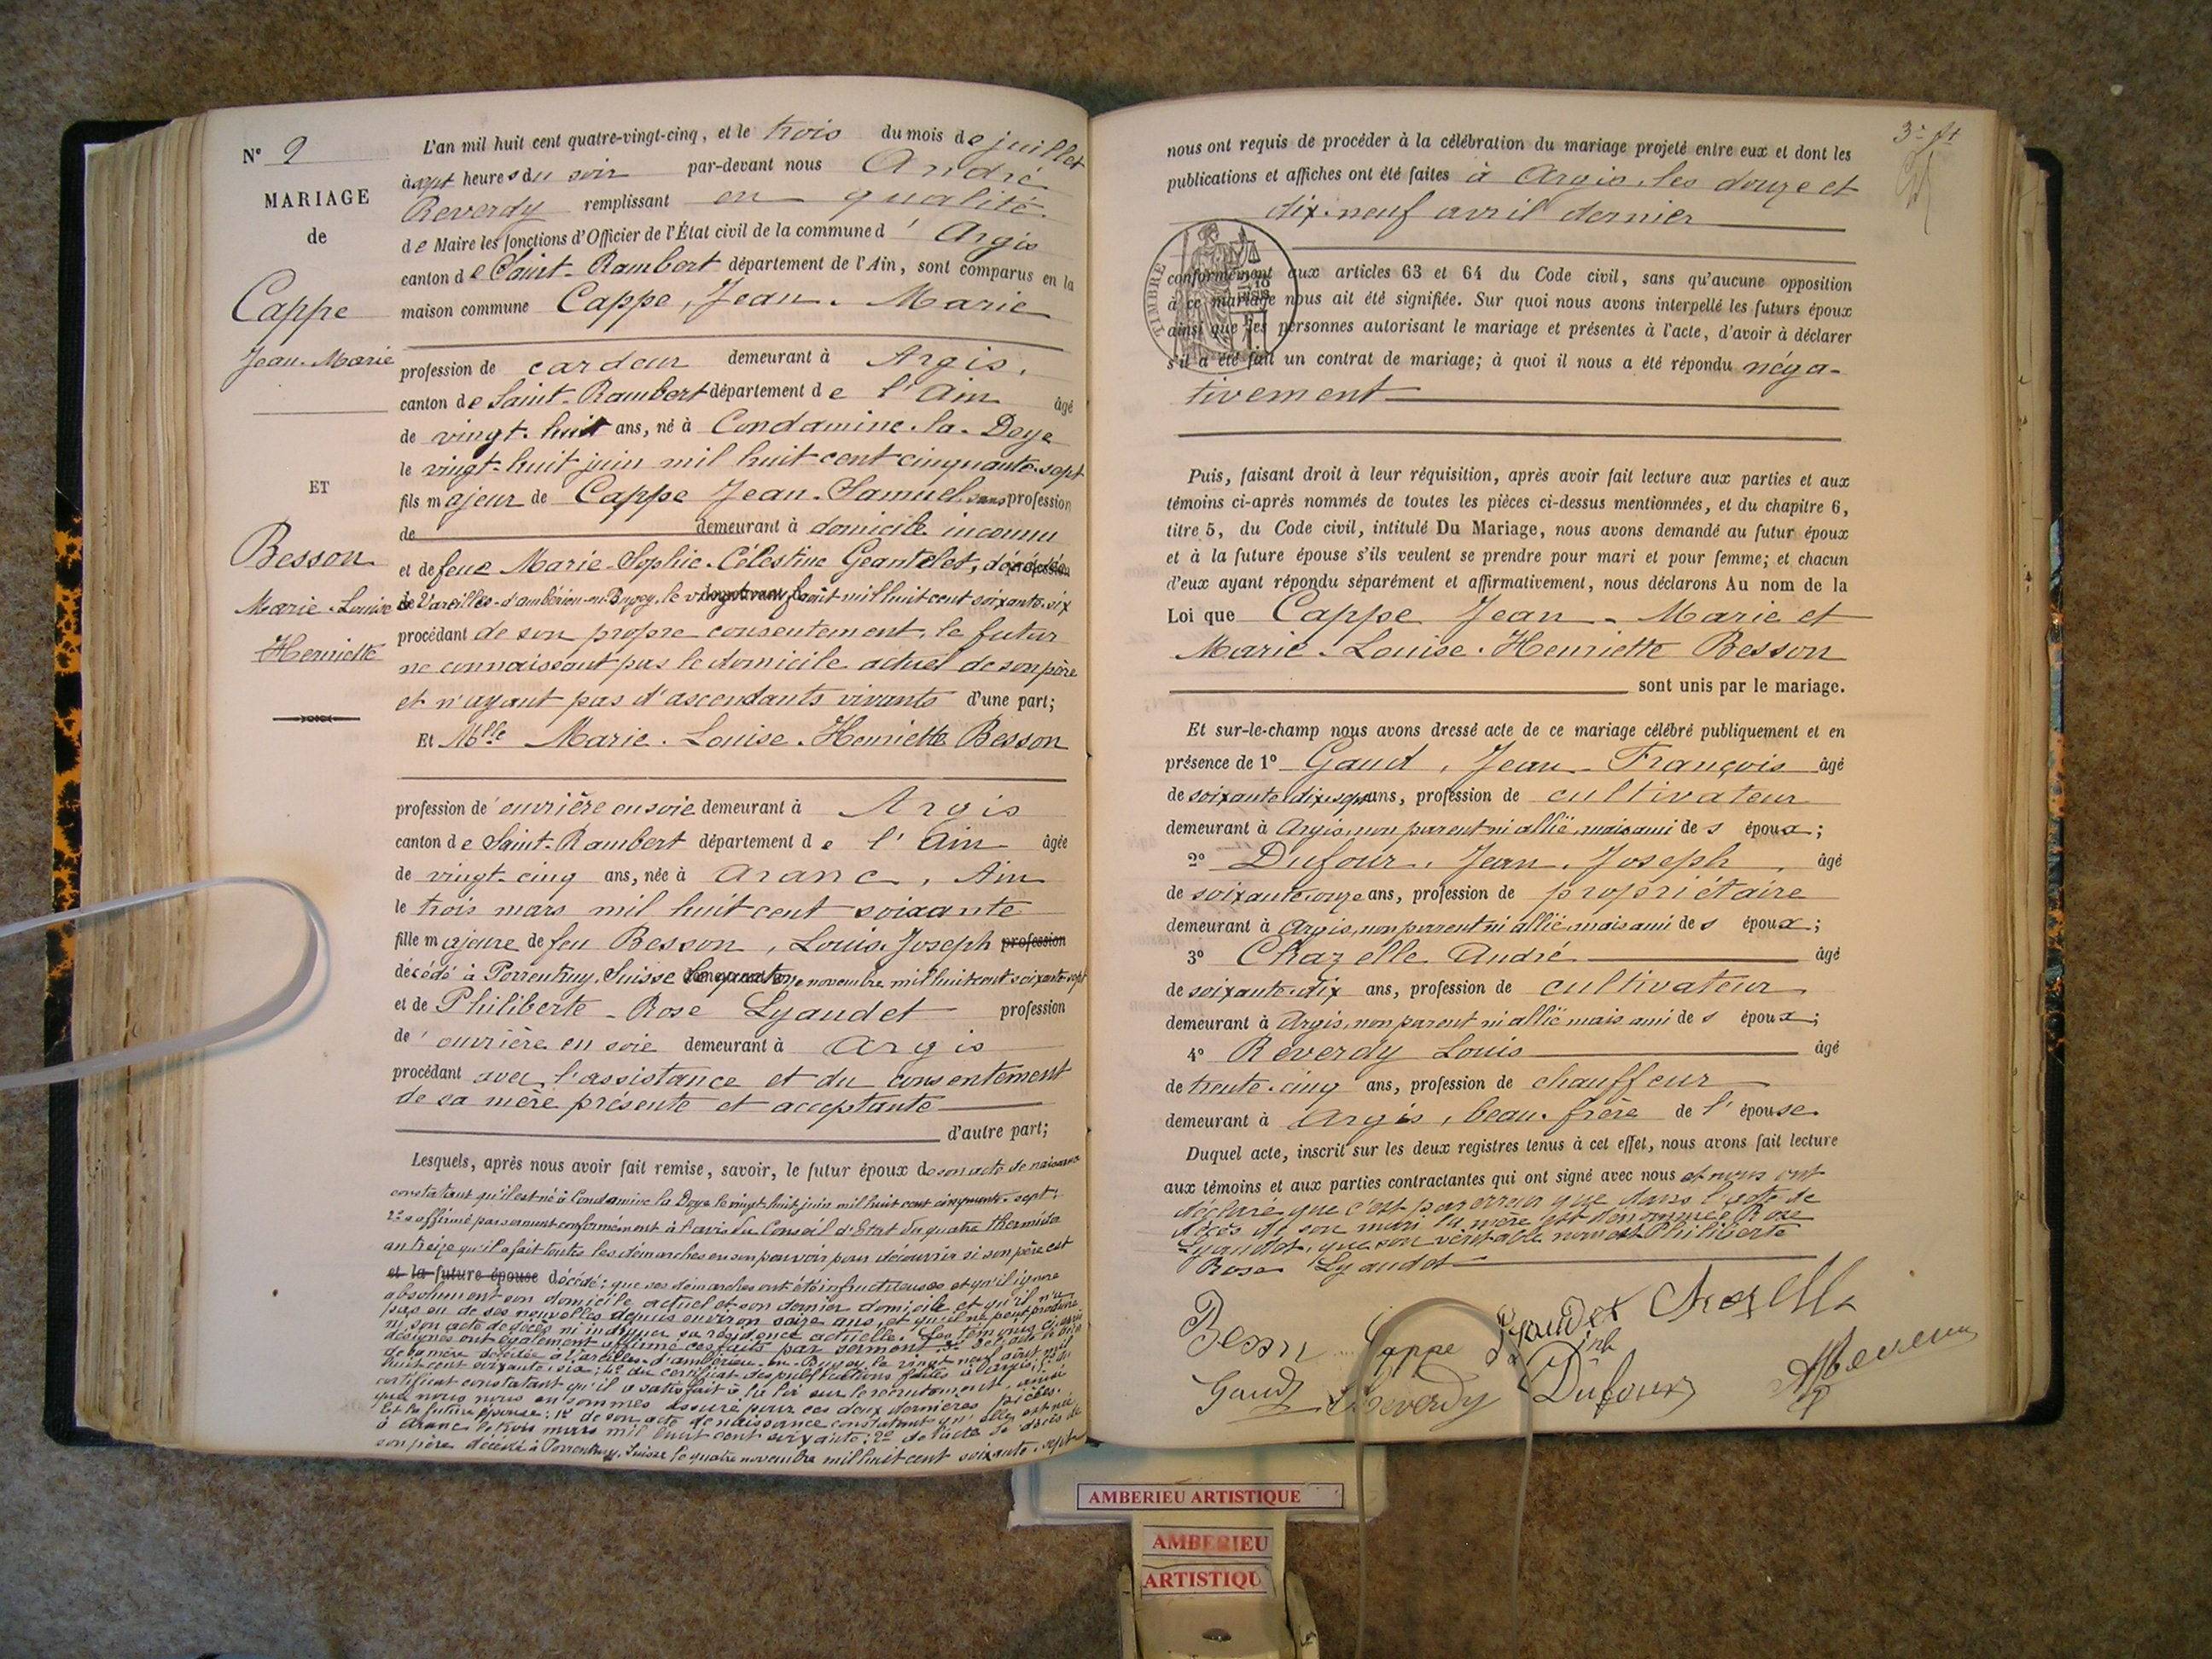 N° 9
MARIAGE
de
Cappe
Jean-Marie
ET
Besson
Marie-Louise
Henriette
L'an mil huit cent quatre-vingt-cinq, et le trois du mois de juillet
à sept heures du soir par-devant nous André
Reverdy remplissant en qualité
de Maire les fonctions d'Officier de l'État civil de la commune d'Argis
canton de Saint-Rambert département de l'Ain, sont comparus en la
maison commune Cappe, Jean-Marie
profession de cardeur demeurant à Argis,
canton de Saint-Rambert département de l'Ain âgé
de vingt-huit ans, né à Condamine-la-Doye
le vingt-huit juin mil huit cent cinquante-sept
fils majeur de Cappe Jean-Samuel sans profession
de demeurant à domicile inconnu
et de feue Marie-Sophie-Célestine Geantelet, décédée
à Vareilles-d'ambérieu-en-Bugey, le vingt neuf août mil huit cent soixante-six
procédant de son propre consentement, le futur
ne connaissant pas le domicile actuel de son père
et n'ayant pas d'ascendants vivants d'une part;
Et Mlle Marie-Louise-Henriette Besson
profession d'ouvrière en soie demeurant à Argis
canton de Saint-Rambert département de l'Ain âgée
de vingt-cinq ans, née à Aranc, Ain
le trois mars mil huit cent soixante
fille majeure de feu Besson, Louis-Joseph profession
décédé à Porrentruy, Suisse le quatre novembre mil huit cent soixante-sept
et de Philiberte-Rose Lyaudet profession
d'ouvrière en soie demeurant à Argis
procédant avec l'assistance et du consentement
de sa mère présente et acceptante
d'autre part;
Lesquels, après nous avoir fait remise, savoir, le futur époux de son acte de naissance
constatant qu'il est né à Condamine la Doye le vingt-huit juin mil huit cent cinquante-sept;
2° a affirmé par serment conformément à l'avis du Conseil d'Etat du quatre thermidor
an treize qu'il a fait toutes les démarches en son pouvoir pour découvrir si son père est
et la future épouse décédé; que ses démarches ont été infructueuses et qu'il ignore
absolument son domicile actuel et son dernier domicile et qu'il n'a
pas eu de ses nouvelles depuis environ seize ans, et qu'il ne peut produire
ni son acte de décès ni indiquer sa résidence actuelle. Les témoins ci-après
désignés ont également affirmé ces faits par serment 3° de l'acte de décès
de sa mère décédée à Vareilles-d'ambérieu-en-Bugey le vingt neuf août mil
huit cent soixante-six; 4° du certificat des publications faites à Argis; 5° du
certificat constatant qu'il a satisfait à la loi sur le recrutement, ainsi
que nous nous en sommes assuré pour ces deux dernières pièces.
Et la future épouse: 1° de son acte de naissance constatant qu'elle est née
à Aranc le trois mars mil huit cent soixante; 2° de l'acte de décès de
son père décédé à Porrentruy, Suisse le quatre novembre mil huit cent soixante-sept
nous ont requis de procéder à la célébration du mariage projeté entre eux et dont les
publications et affiches ont été faites à Argis, les douze et
dix-neuf avril dernier
TIMBRE
conformément aux articles 63 et 64 du Code civil, sans qu'aucune opposition
à ce mariage nous ait été signifiée. Sur quoi nous avons interpellé les futurs époux
ainsi que les personnes autorisant le mariage et présentes à l'acte, d'avoir à déclarer
s'il a été fait un contrat de mariage; à quoi il nous a été répondu néga-
tivement
Puis, faisant droit à leur réquisition, après avoir fait lecture aux parties et aux
témoins ci-après nommés de toutes les pièces ci-dessus mentionnées, et du chapitre 6,
titre 5, du Code civil, intitulé Du Mariage, nous avons demandé au futur époux
et à la future épouse s'ils veulent se prendre pour mari et pour femme; et chacun
d'eux ayant répondu séparément et affirmativement, nous déclarons Au nom de la
Loi que Cappe Jean-Marie et
Marie-Louise-Henriette Besson
sont unis par le mariage.
Et sur-le-champ nous avons dressé acte de ce mariage célébré publiquement et en
présence de 1° Gaud, Jean-François âgé
de soixante dix-sept ans, profession de cultivateur
demeurant à Argis, non parent ni allié mais ami des époux;
2° Dufour, Jean, Joseph, âgé
de soixante-onze ans, profession de propriétaire
demeurant à Argis, non parent ni allié mais ami des époux;
3° Chazelle André âgé
de soixante-dix ans, profession de cultivateur
demeurant à Argis, non parent ni allié mais ami des époux;
4° Reverdy Louis âgé
de trente-cinq ans, profession de chauffeur
demeurant à Argis, beau-frère de l'épouse.
Duquel acte, inscrit sur les deux registres tenus à cet effet, nous avons fait lecture
aux témoins et aux parties contractantes qui ont signé avec nous et nous ont
déclaré que c'est par erreur que dans l'acte de
décès de son mari la mère est dénommée Rose
Lyaudet, que son véritable nom est Philiberte
Rose Lyaudet
Besson Cappe Lyaudet Chazelle
Gaud Reverdy Dufour A Reverdy
AMBERIEU ARTISTIQUE
AMBERIEU
ARTISTIQU